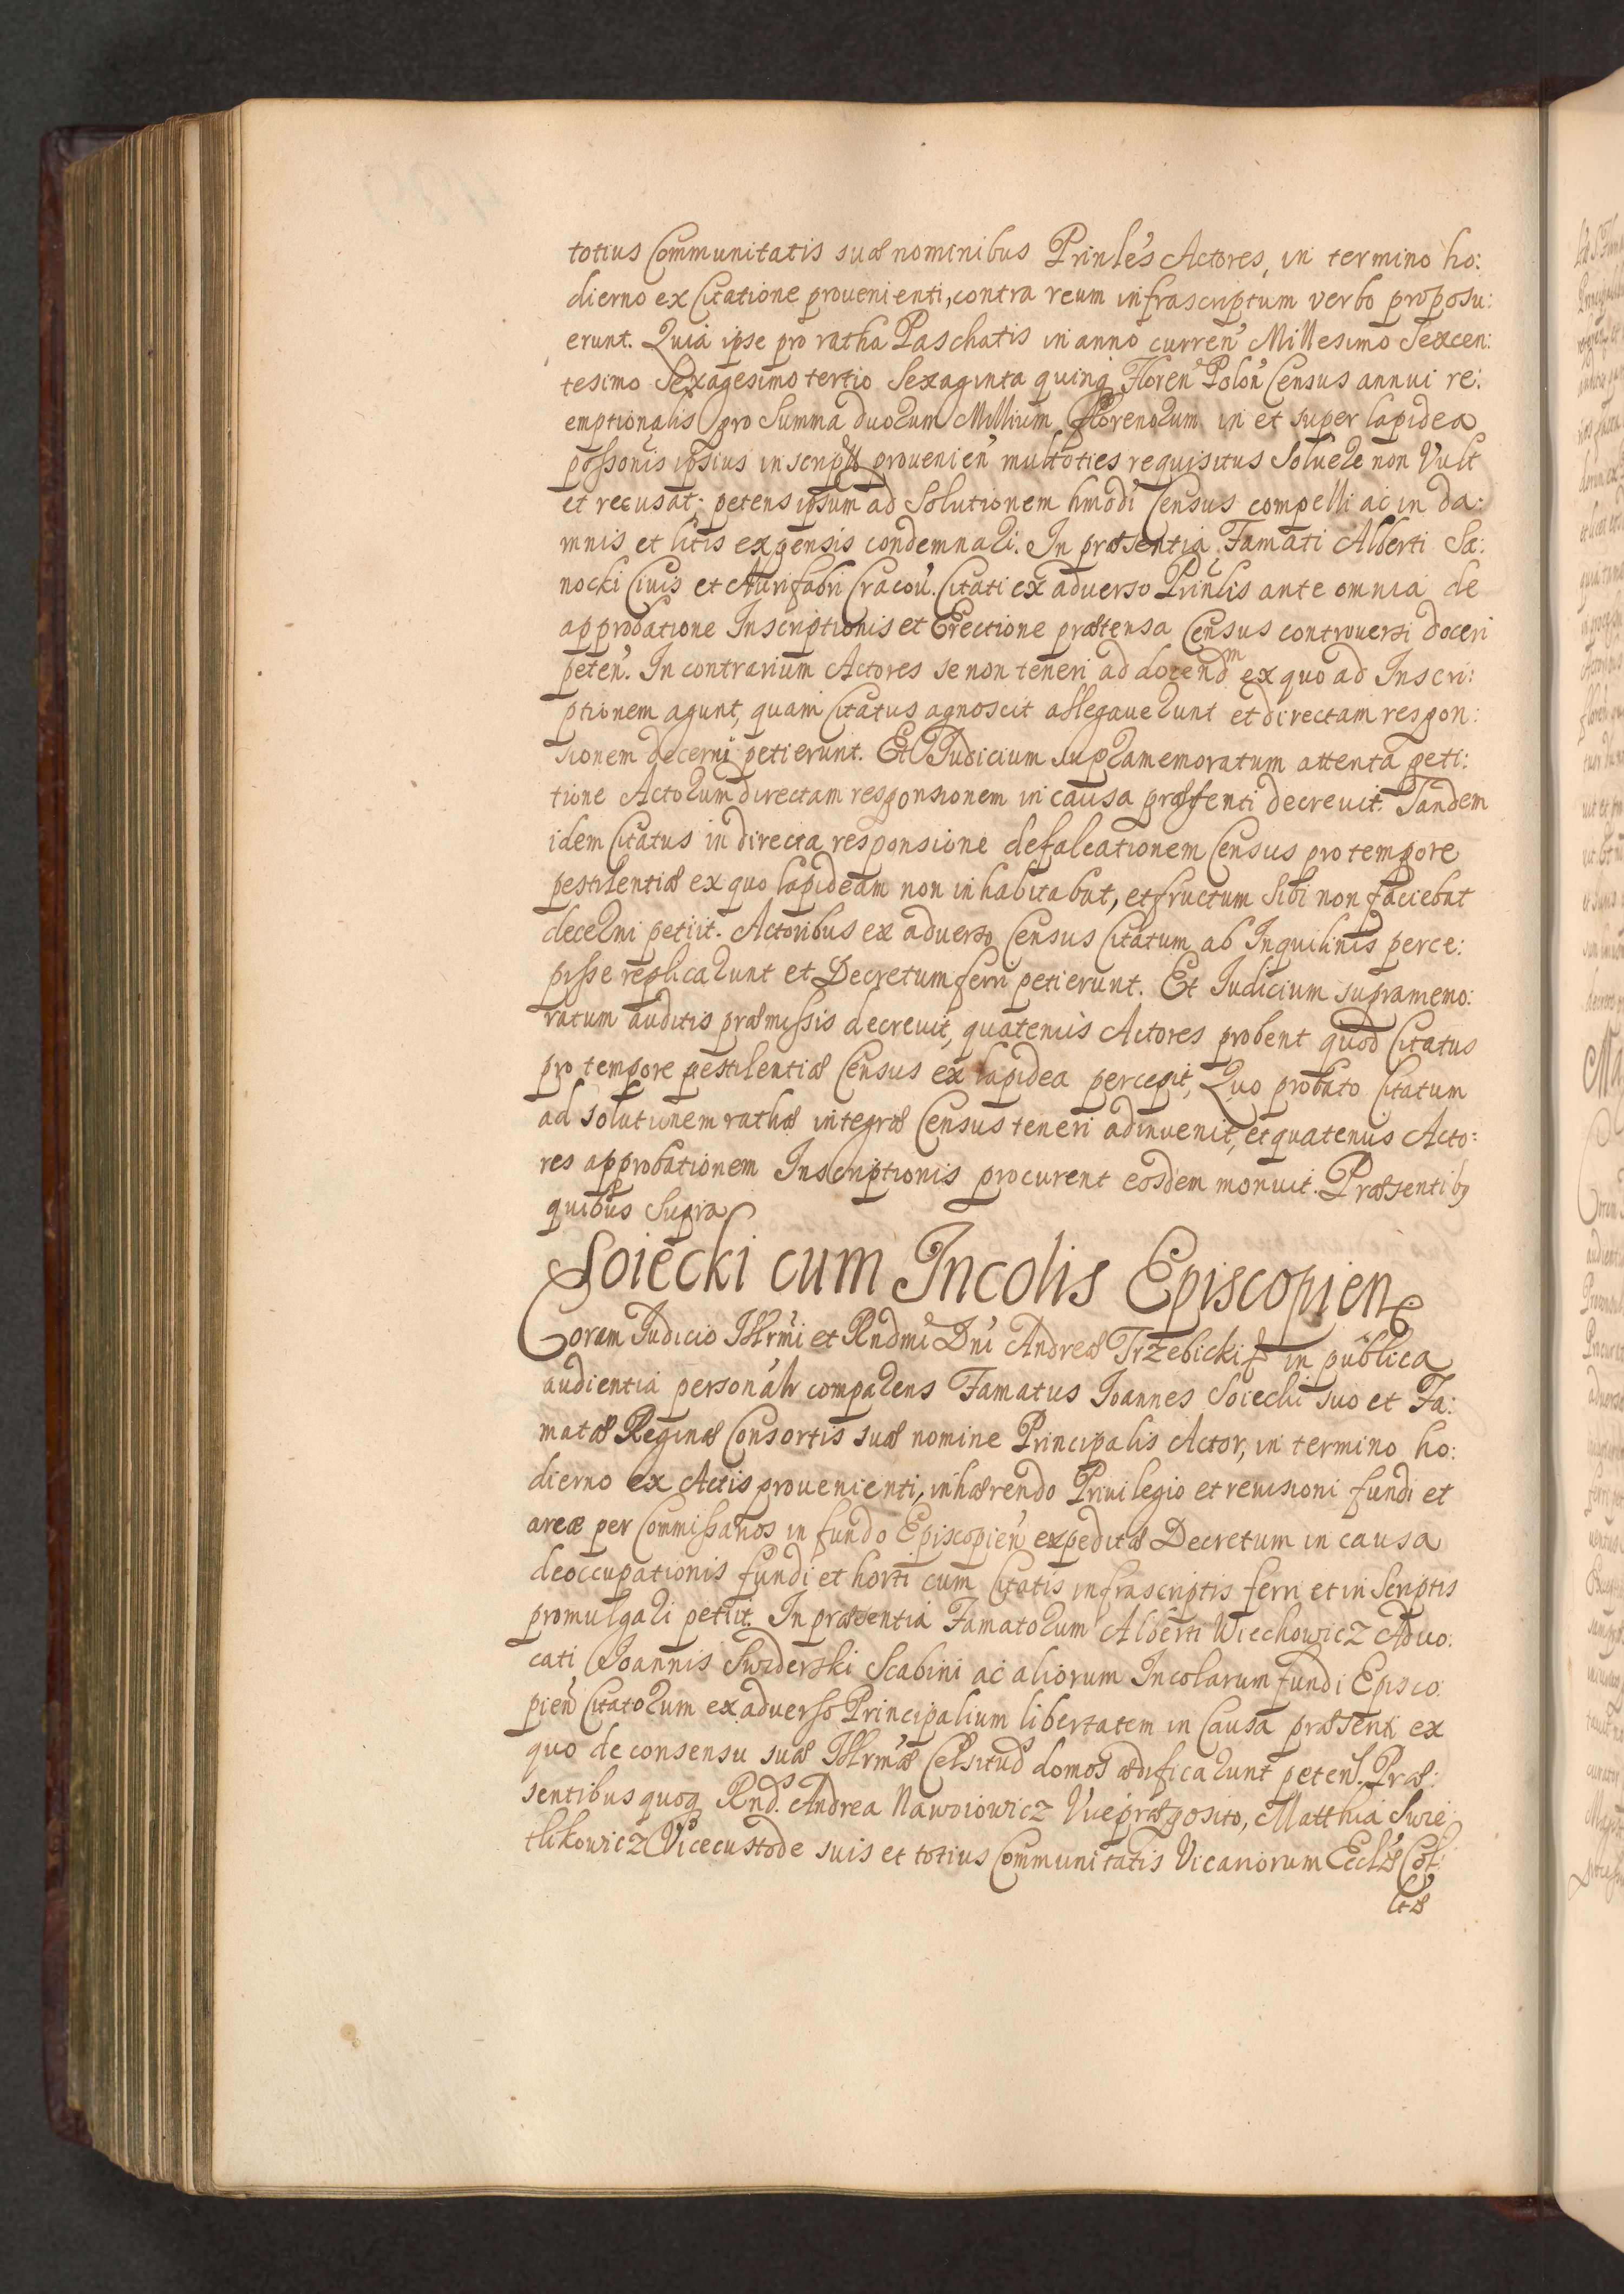 totius Communitatis suæ nominibus Prinles Actores, in termino ho:
dierno ex Citatione prouenienti, contra reum infrascriptum verbo proposu:
erunt. Quia ipse pro ratha Paschatis in anno curren Millesimo Sexcen:
tesimo Sexagesimo tertio Sexaginta quinq Floren Polon Census annui re:
emptionalis pro Summa duorum Millium Florenorum in et super lapidea
possonis ipsius inscript prouenien multoties requisitus Soluere non Vult
et recusat; petens ipsum ad Solutionem hmodi Census compelli ac in da:
mnis et litis expensis condemnari. In præsentia Famati Alberti Sa:
nocki Ciuis et Aurifabri Cracou. Citati ex aduerso Prinlis ante omnia de
approbatione Inscriptionis et Erectione prætensa Census controuersi doceri
peten. In contrarium Actores se non teneri ad docendm ex quo ad Inscri:
ptionem agunt, quam Citatus agnoscit allegauerunt et directam respon:
sionem decerni petierunt. Et Iudicium supramemoratum attenta peti:
tione Actorum directam responsionem in causa præssenti decreuit. Tandem
idem Citatus in directa responsione defalcationem Census pro tempore
pestilentiæ ex quo lapideam non inhabitabat, et fructum Sibi non faciebat
decerni petiit. Actoribus ex aduerso Census Citatum ab Inquilinis perce:
pisse replicarunt et Decretum ferri petierunt. Et Iudicium supramemo:
ratum auditis præmissis decreuit, quatenus Actores probent quod Citatus
pro tempore pestilentiæ Census ex lapidea percepit, Quo probato Citatum
ad solutionem rathæ integræ Census teneri adinuenit, et quatenus Acto:
res approbationem Inscriptionis procurent eosdem monuit. Præsentibq
quibus Supra
Soiecki cum Incolis Episcopien
Coram Iudicio Illrmi et Rndmi Dni Andreæ Trzebicki in publica
audientia personalr comparens Famatus Ioannes Soiecki suo et Fa:
matæ Reginæ Consortis suæ nomine Principalis Actor, in termino ho:
dierno ex Actis prouenienti, inhærendo Priuilegio et reuisioni fundi et
areæ per Commissarios in fundo Episcopien expeditæ Decretum in causa
deoccupationis fundi et horti cum Citatis infrascriptis ferri et in Scriptis
promulgari petiit. In præsentia Famatorum Alberti Wiechowicz Aduo:
cati, Ioannis Swiderski Scabini ac aliorum Incolarum fundi Episco:
pien Citatorum ex aduerso Principalium libertatem in Causa præsenti ex
quo de consensu suæ Illrmæ Celsituds domos ædificarunt peten. Præ:
sentibus quoq Rnds. Andrea Nawoiowicz Vicepræposito, Matthia Swie
tlikowicz Vicecustode suis et totius Communitatis Vicariorum Ecclæ Col:
ltæ